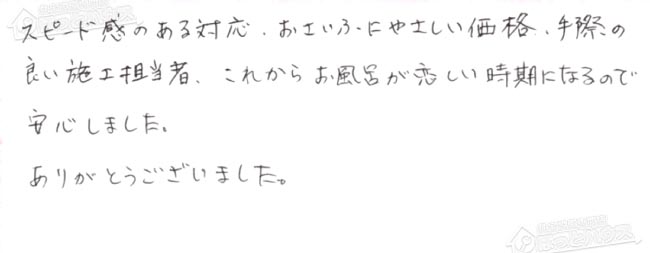 スピード感のある対応、おさいふにやさしい価格、手際の
良い施工担当者、これからお風呂が恋しい時期になるので
安心しました。
ありがとうございました。